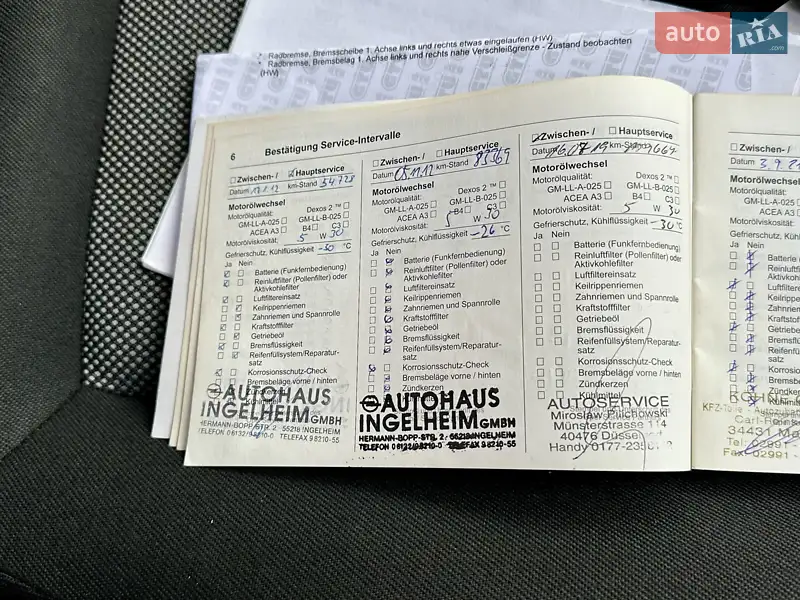 auto RIA.com
* Radbremse, Bremsscheibe 1. Achse links und rechts etwas eingelaufen (HW)
* Radbremse, Bremsbelag 1. Achse links und rechts nahe Verschleißgrenze - Zustand beobachten
(HW)
6 Bestätigung Service-Intervalle
Zwischen- / Hauptservice
Datum km-Stand 54.728
Motorölwechsel
Motorölqualität: Dexos 2 ™
GM-LL-A-025 GM-LL-B-025
ACEA A3 B4 C3
Motorölviskosität: 5 W 30
Gefrierschutz, Kühlflüssigkeit -30 °C
Ja Nein
Batterie (Funkfernbedienung)
Reinluftfilter (Pollenfilter) oder
Aktivkohlefilter
Luftfiltereinsatz
Keilrippenriemen
Zahnriemen und Spannrolle
Kraftstofffilter
Getriebeöl
Bremsflüssigkeit
Reifenfüllsystem/Reparatur-
satz
Korrosionsschutz-Check
Bremsbeläge vorne / hinten
AUTOHAUS
INGELHEIM GMBH
HERMANN-BOPP-STR. 2 55218 INGELHEIM
TELEFON 06132/98210-0 TELEFAX 98210-55
Zwischen- / Hauptservice
Datum 05.11.12 km-Stand 83369
Motorölwechsel
Motorölqualität: Dexos 2 ™
GM-LL-A-025 GM-LL-B-025
ACEA A3 B4 C3
Motorölviskosität: 5 W 30
Gefrierschutz, Kühlflüssigkeit -26 °C
Ja Nein
Batterie (Funkfernbedienung)
Reinluftfilter (Pollenfilter) oder
Aktivkohlefilter
Luftfiltereinsatz
Keilrippenriemen
Zahnriemen und Spannrolle
Kraftstofffilter
Getriebeöl
Bremsflüssigkeit
Reifenfüllsystem/Reparatur-
satz
Korrosionsschutz-Check
Bremsbeläge vorne / hinten
Zündkerzen
AUTOHAUS
INGELHEIM GMBH
HERMANN-BOPP-STR. 2 55218 INGELHEIM
TELEFON 06132/98210-0 TELEFAX 98210-55
Zwischen- / Hauptservice
Datum 16.07.19 km-Stand
Motorölwechsel
Motorölqualität: Dexos 2 ™
GM-LL-A-025 GM-LL-B-025
ACEA A3 B4 C3
Motorölviskosität: 5 W 30
Gefrierschutz, Kühlflüssigkeit -30 °C
Ja Nein
Batterie (Funkfernbedienung)
Reinluftfilter (Pollenfilter) oder
Aktivkohlefilter
Luftfiltereinsatz
Keilrippenriemen
Zahnriemen und Spannrolle
Kraftstofffilter
Getriebeöl
Bremsflüssigkeit
Reifenfüllsystem/Reparatur-
satz
Korrosionsschutz-Check
Bremsbeläge vorne / hinten
Zündkerzen
Kühlmittel
AUTOSERVICE
Miroslaw Pulchowski
Münsterstrasse 114
40476 Düssel
Handy 0177-235
Zwischen- /
Datum 3.9.2
Motorölwechsel
Motorölqualität:
GM-LL-A
ACEA
Motorölviskosität:
Gefrierschutz, K
Ja Nein
Batterie
Reinluft
Aktivkohl
Luftfilter
Keilrippen
Zahnriem
Kraftstof
Getriebeö
Bremsflüs
Reifenfüll
satz
Korrosion
Bremsbe
KFZ-Teile
Carl-
34431 Ma
Tel. 02991
Fax 02991